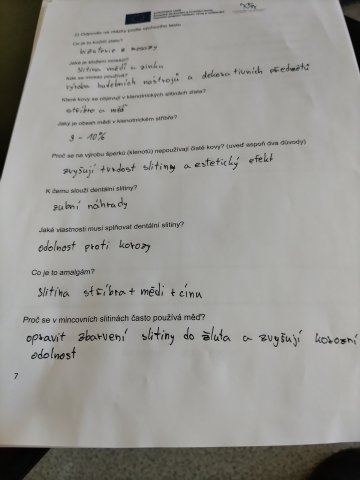 2) Odpověz na otázky podle výchozího textu
Co je to kočičí zlato?
bižuterie z mosazy
Jaké je složení mosazi?
slitina mědi a zinku
Kde se mosaz používá?
výroba hudebních nástrojů a dekorativních předmětů
Které kovy se objevují v klenotnických slitinách zlata?
stříbro a měď
Jaký je obsah mědi v klenotnickém stříbře?
3 - 10%
Proč se na výrobu šperků (klenotů) nepoužívají čisté kovy? (uveď aspoň dva důvody)
zvyšují tvrdost slitiny a estetický efekt
K čemu slouží dentální slitiny?
zubní náhrady
Jaké vlastnosti musí splňovat dentální slitiny?
odolnost proti korozy
Co je to amalgám?
slitina stříbra + mědi + cínu
Proč se v mincovních slitinách často používá měď?
opravit zbarvení slitiny do žluta a zvyšují korozní
odolnost
7